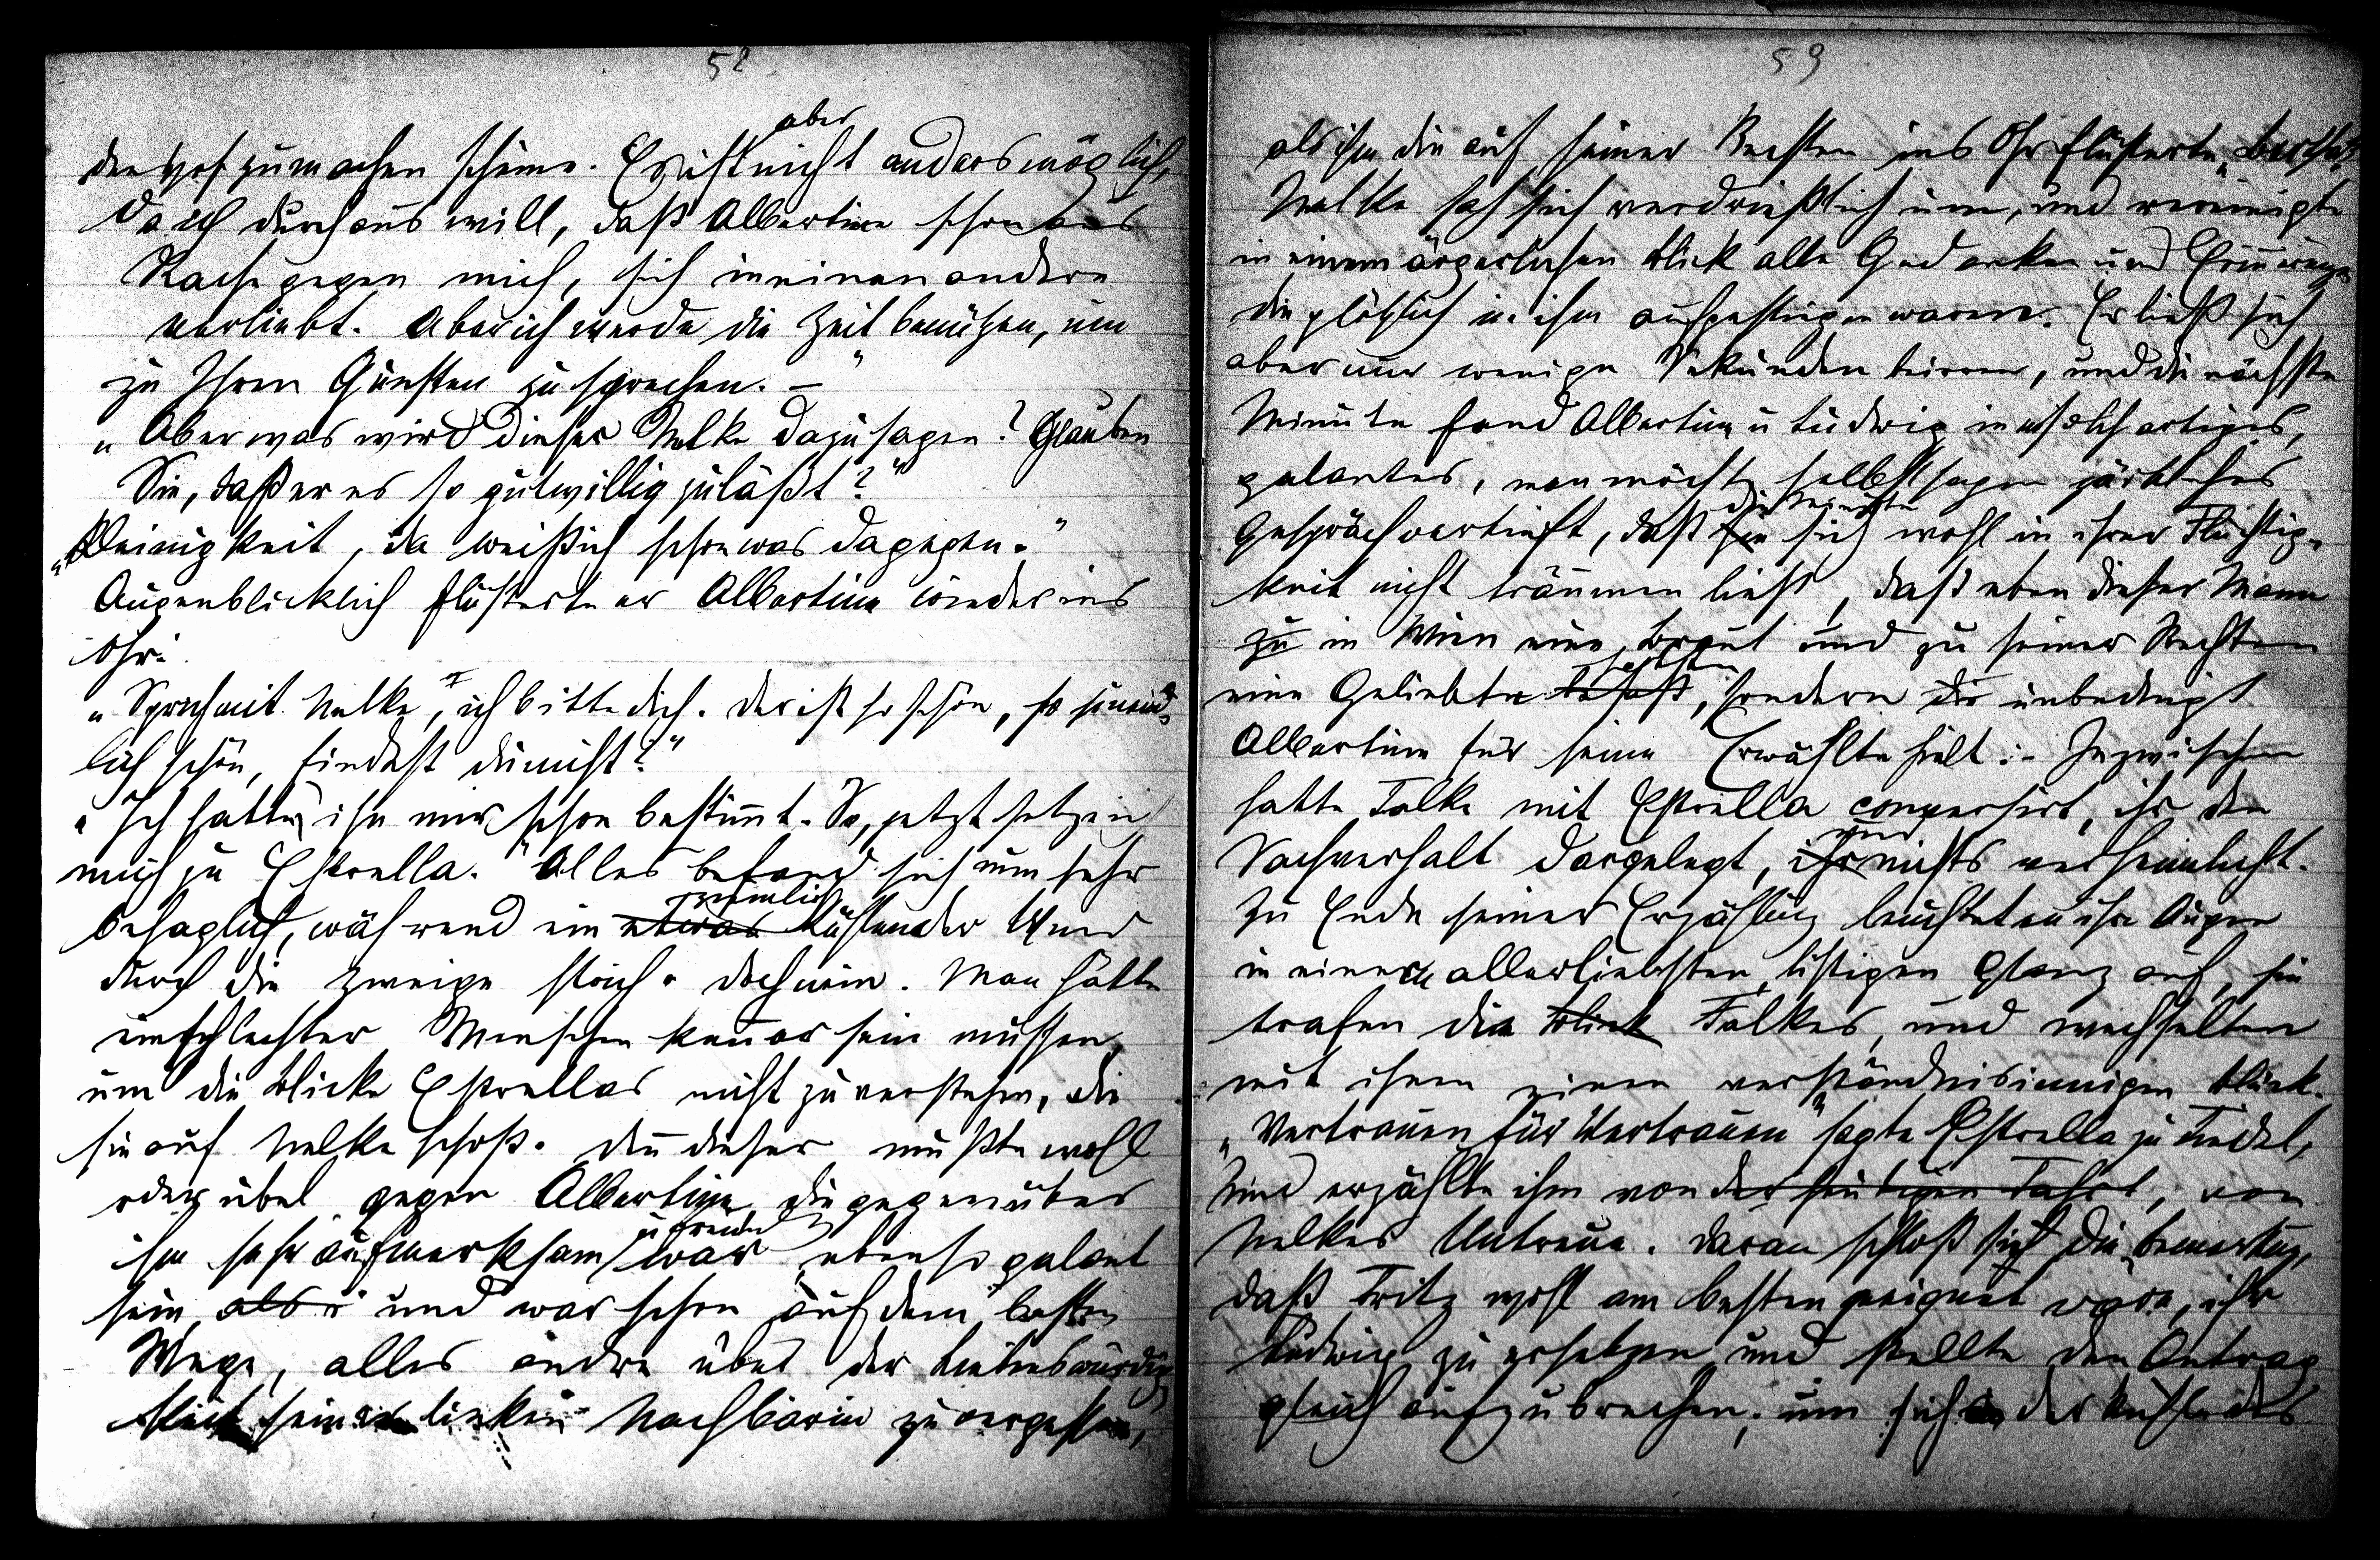 58
den Hof zu machen schiene. Es ist aber nicht anders möglich,
da ich durchaus will, daß Albertine schon aus
Rache gegen mich, sich in einen andern
verliebt. Aber ich werde die Zeit benützen, um
zu Ihren Gunsten zu sprechen. –"
„Aber was wird dieser Nelke dazu sagen? Glauben
Sie, daß er es so gutwillig zuläßt?"
„Kleinigkeit, da weiß ich schon was dagegen."
Augenblicklich flüsterte er Albertine wieder ins
Ohr:
„Sprich mit Nelke, ich bitte dich. Der ist so schön, so
lich schön, findest du nicht?"
„Ich hatte ihn mir schon bestimmt. So, jetzt setze ich
mich zu Estrella." Alles befand sich nun sehr
behaglich, während ein etwas ziemlich kühlender Wind
durch die Zweige strich. doch nein. Man hätte
ein schlechter Menschenkenner sein müssen,
um die Blicke Estrellas nicht zu verstehen, die
sie auf Nelke schoß. Denn dieser mußte wohl
oder übel gegen Albertine, die gegenüber
ihm sehr aufmerksam u freundl war ebenso galant
sein, als r und war schon auf dem besten
Wege, alles andre über der Liebenswürdig
keit seiner linken Nachbarin zu vergessen,
59
als ihm die auf seiner Rechten ins Ohr flüsterte „Bertha"
Nelke sah sich verdrießlich um, und vereinigte
in einem ärgerlichen Blick alle Gedanken und Erinnerungen
die plötzlich in ihm aufgestiegen waren. Er ließ sich
aber nur wenige Sekunden beirren, und die nächste
Minute fand Albertine u Ludwig in solch artiges,
galantes, man möchte selbst sagen zärtliches
Gespräch vertieft, daß sie die Minute sich wohl in ihrer Flüchtig-
keit nicht träumen ließ, daß eben dieser Mann
zu in Wien eine Braut und zu seiner Rechten
eine Geliebte besaß, sondern die unbedingt
Albertine für seine Erwählte hielt. – Inzwischen
hatte Falke mit Estrella conversirt, ihr den
Sachverhalt dargelegt, ihr und nichts verheimlicht.
Zu Ende seiner Erzählung leuchteten ihre Augen
in einem allerliebsten, listigen Glanz auf, sie
trafen die Blick Falkes, und wechselten
mit ihnen einen verständnisinnigen Blick.
„Vertrauen für Vertrauen" sagte Estrella zu
und erzählte ihm von der heutigen Fahrt, von
Nelkes Untreue. Daran schloß sich die Bemerkung,
daß Fritz wohl am besten geeignet wäre, ihr
Ludwig zu ersetzen und stellte den Antrag
gleich aufzubrechen, um sich in der Kühle des